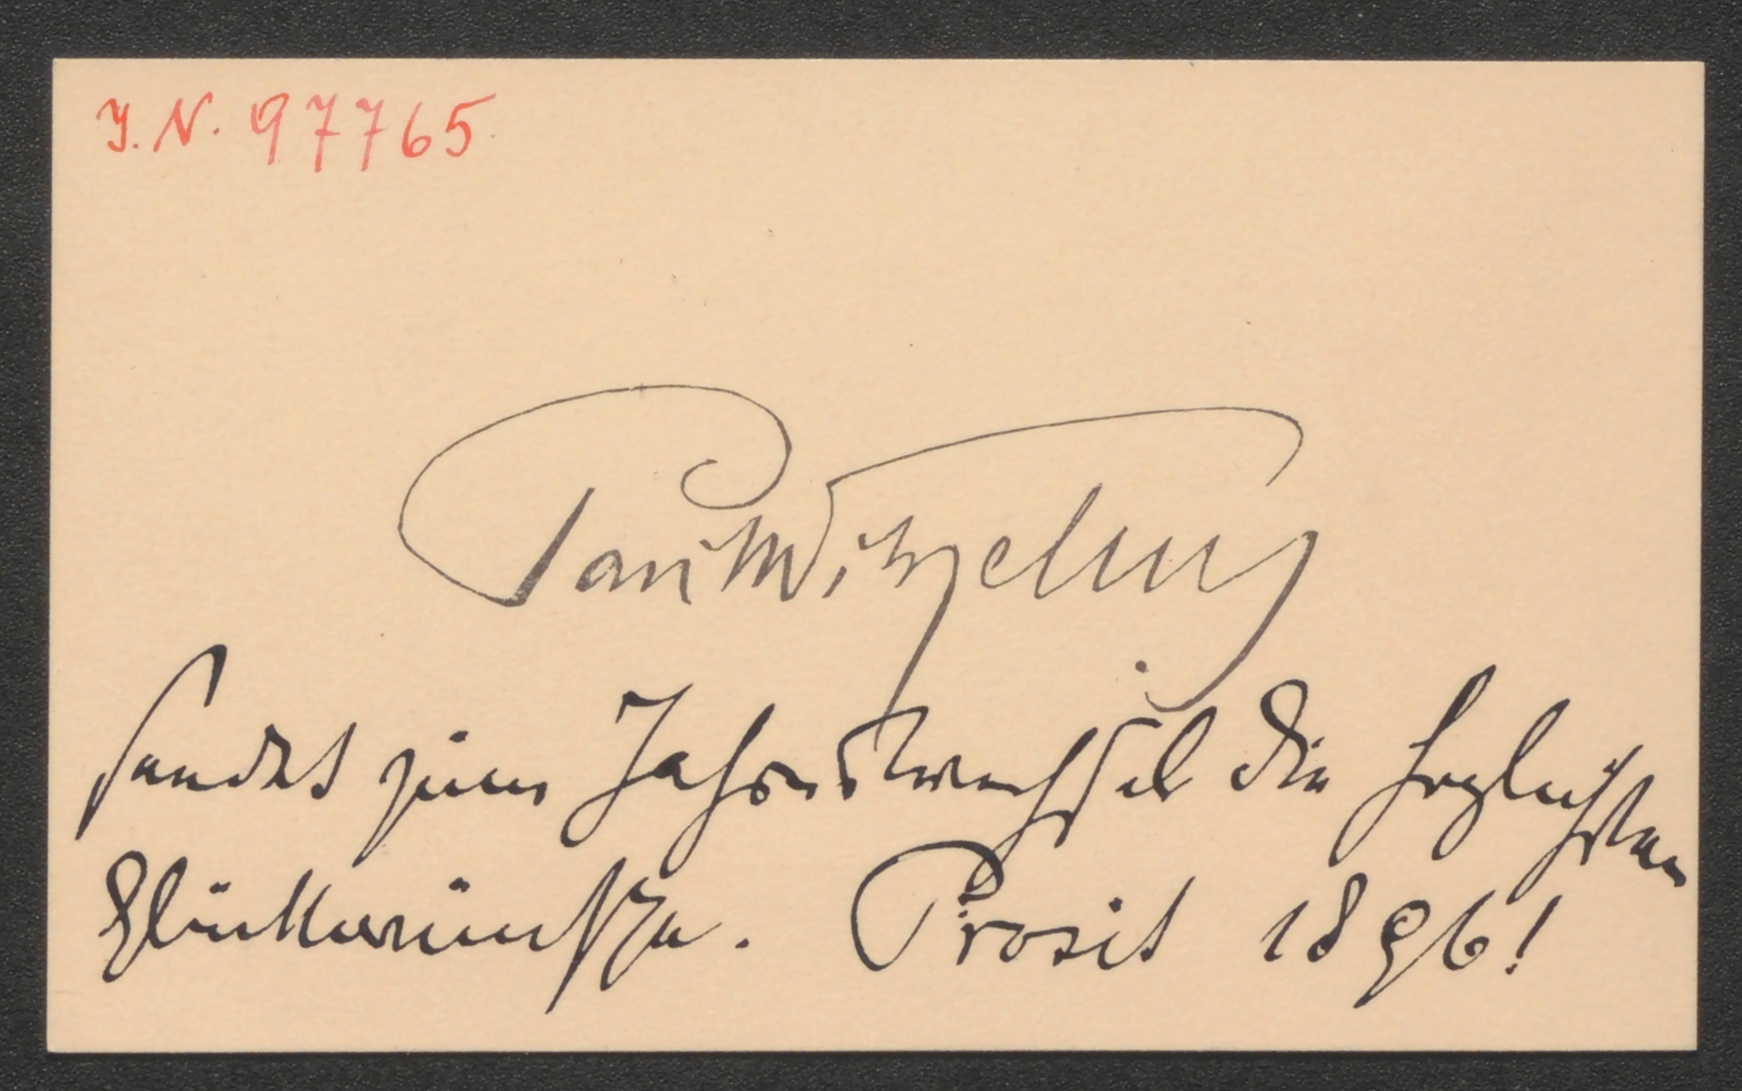 J. N. 97765
sendet zum Jahreswechsel die herzlichsten
Glückwünsche. Prosit 1896!